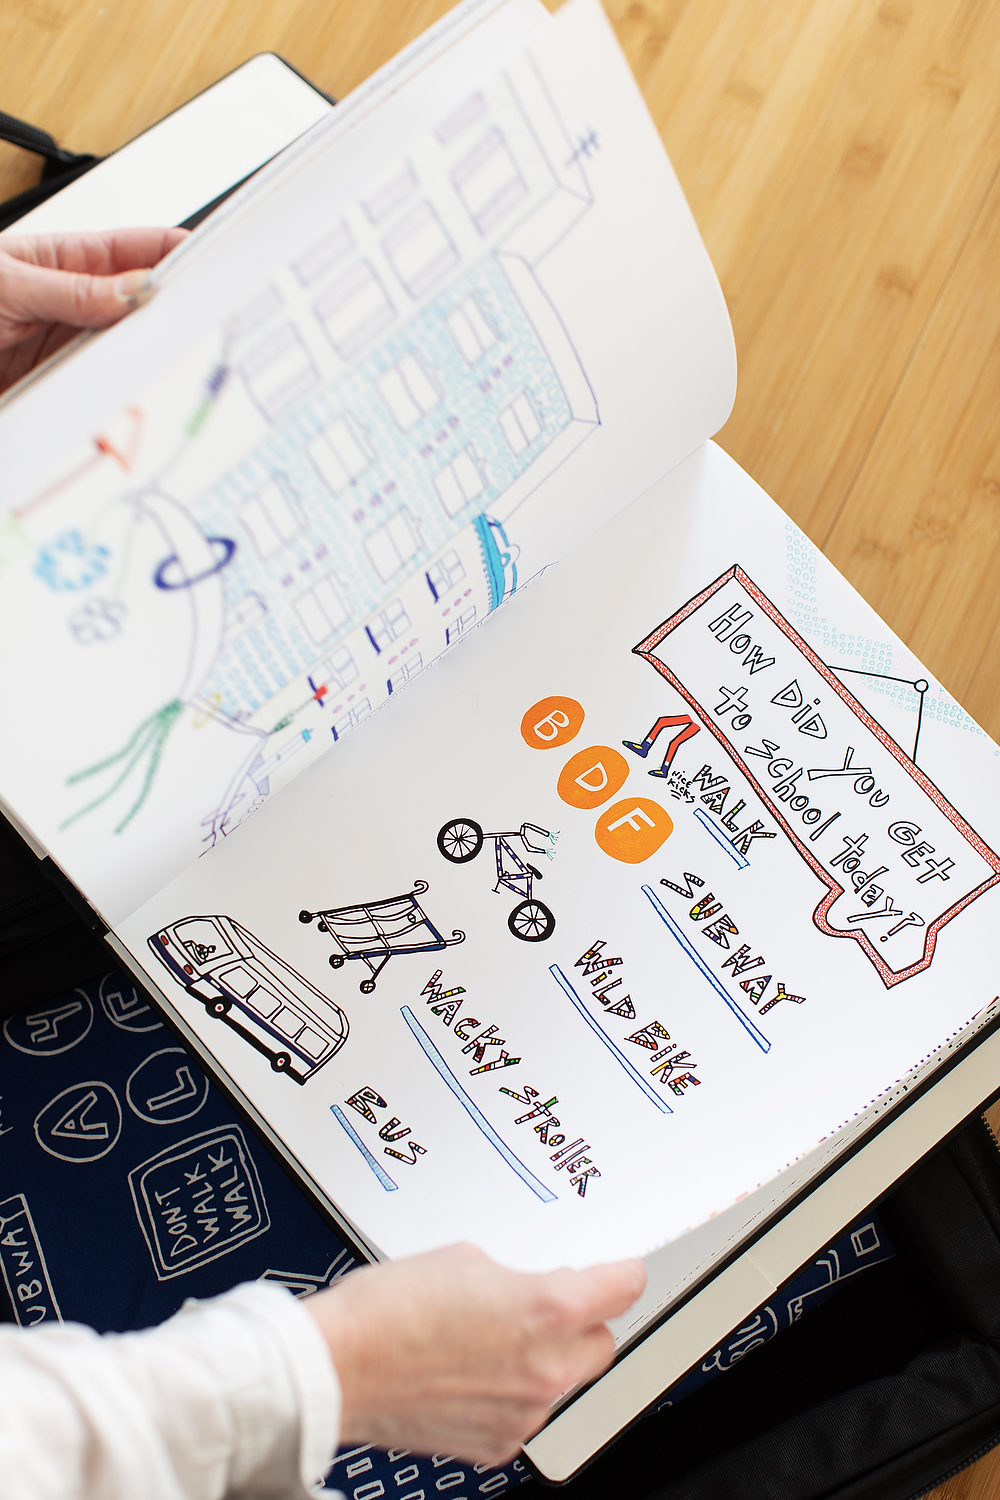 How DiD You GEt
to School today?
WALK
NiCE
KiCKS
B
D
F
SUBWAY
WiLD BiKE
WACKY StROllER
BUS
A
L
DON'T
WALK
WALK